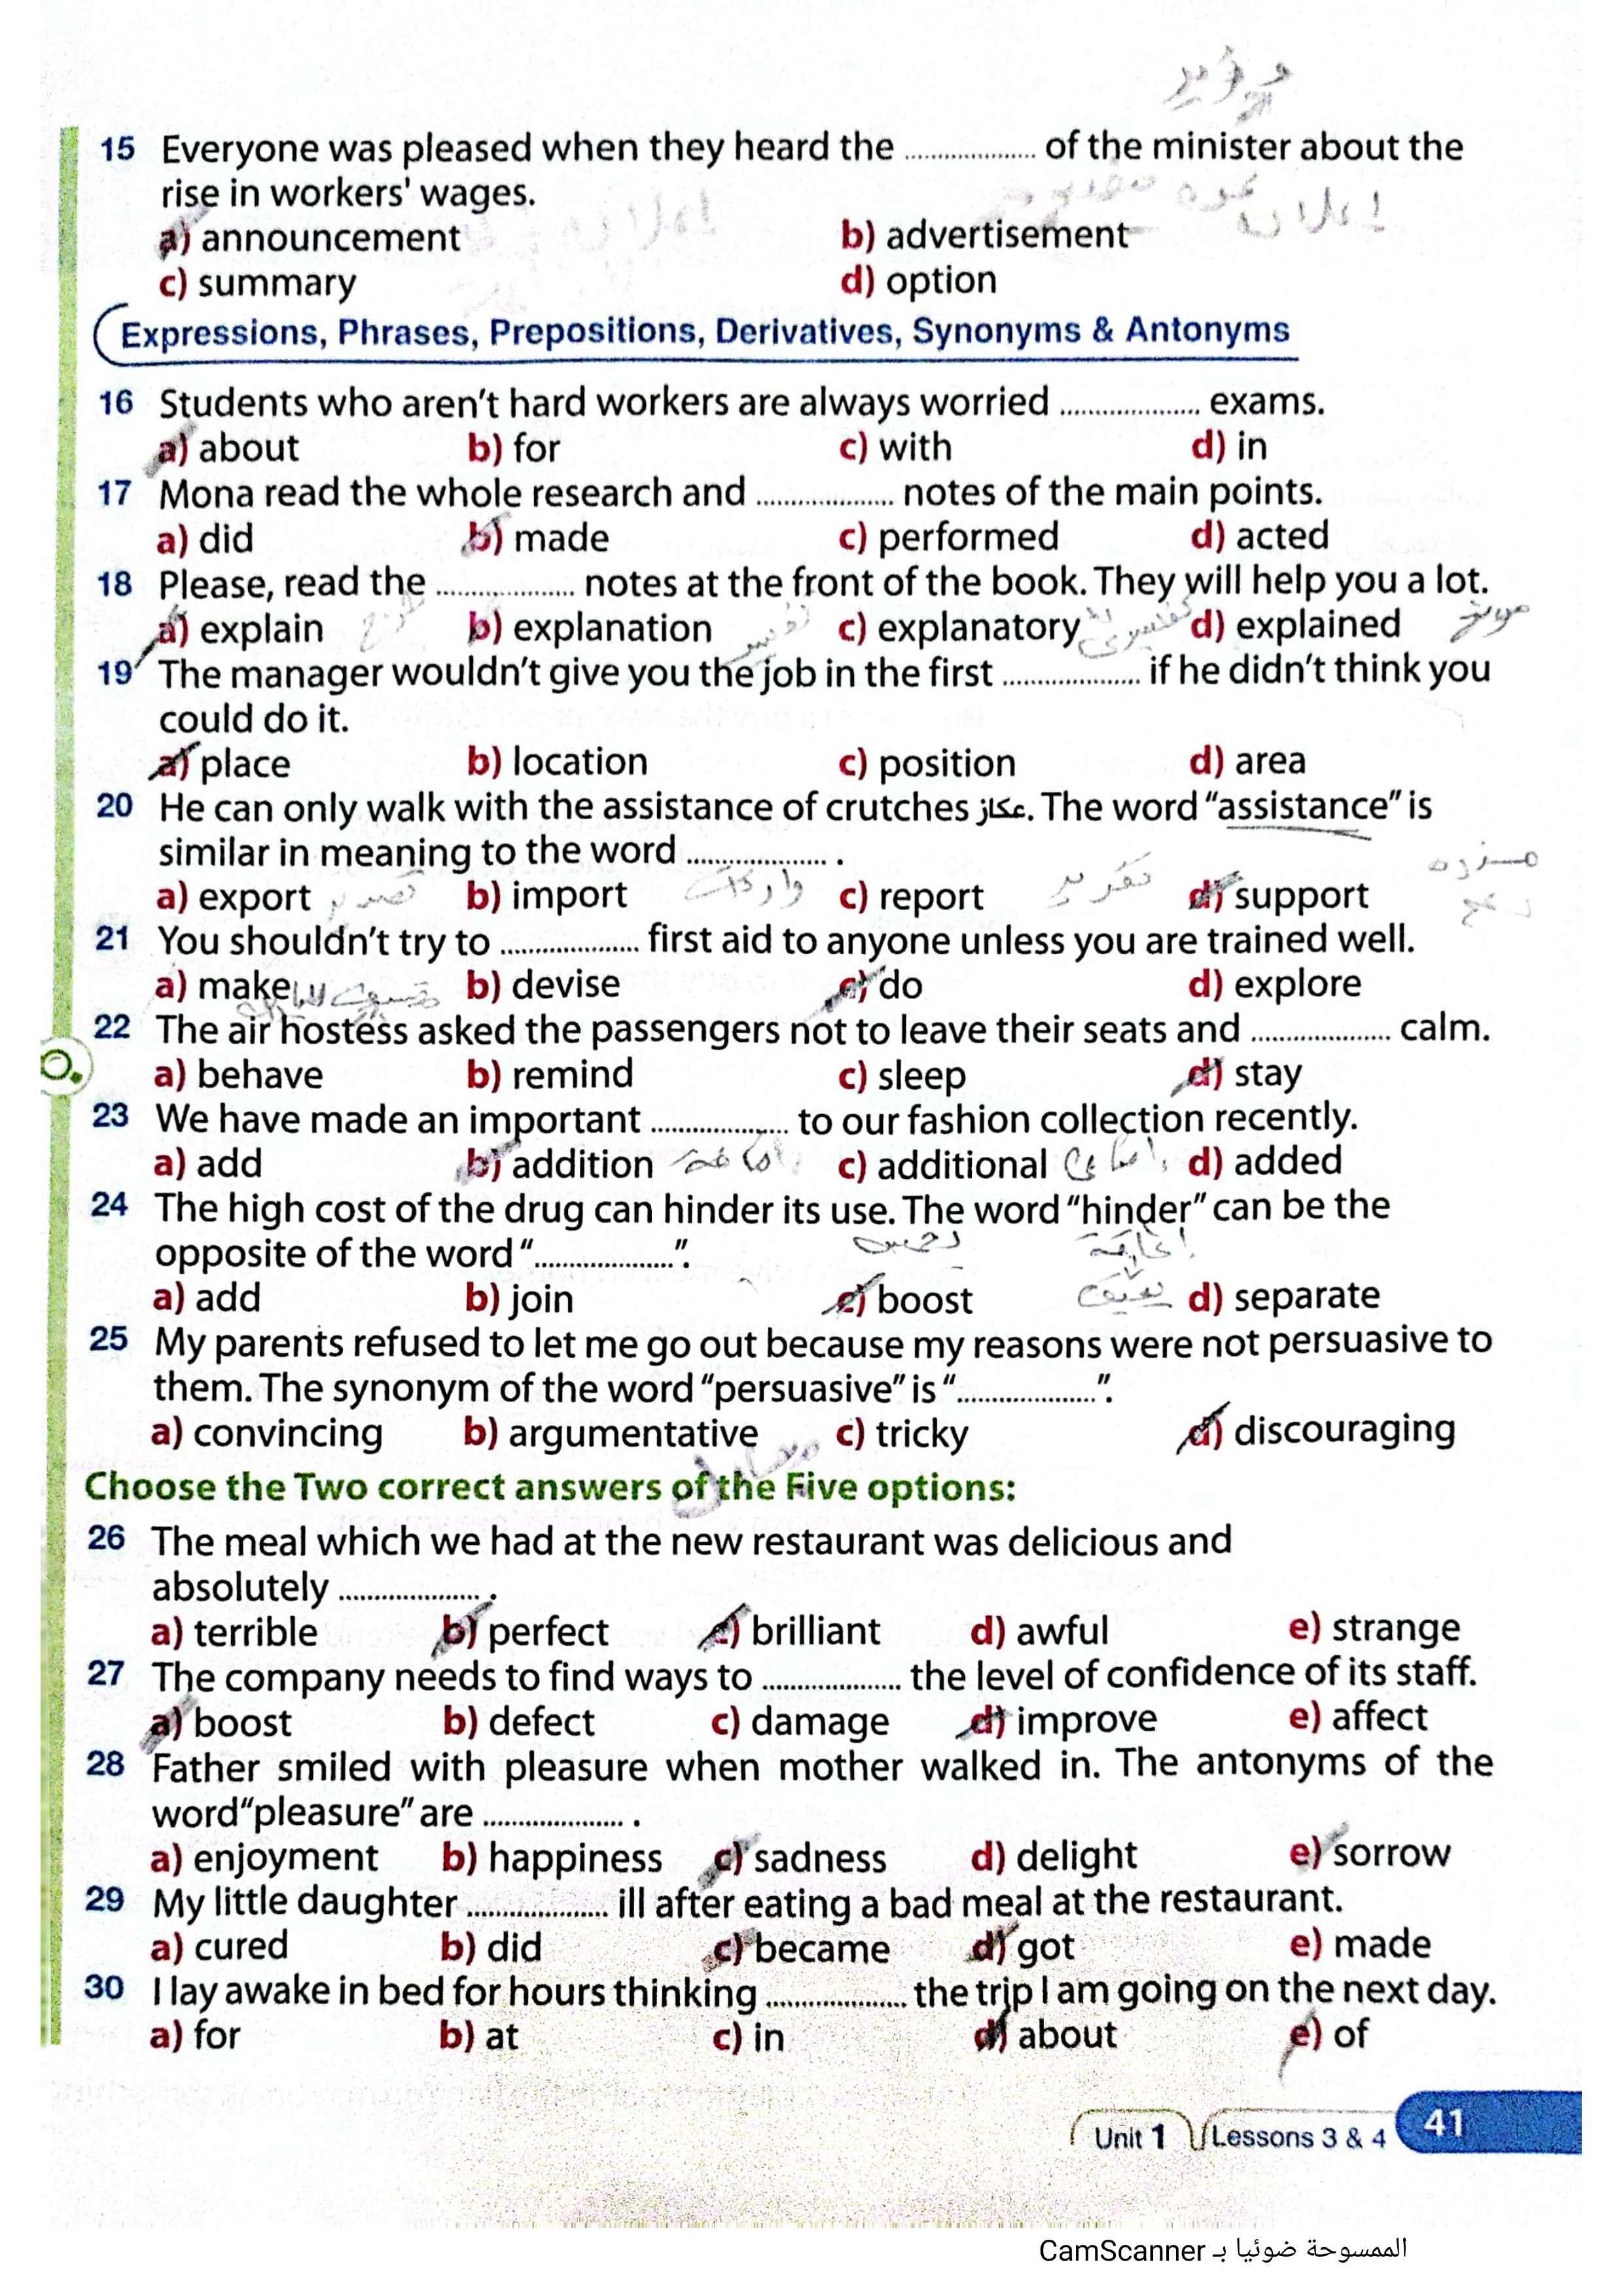 وزير
15 Everyone was pleased when they heard the .................. of the minister about the
rise in workers' wages.
إعلان
a) announcement b) advertisement
c) summary d) option
Expressions, Phrases, Prepositions, Derivatives, Synonyms & Antonyms
16 Students who aren't hard workers are always worried .................. exams.
a) about b) for c) with d) in
17 Mona read the whole research and .................. notes of the main points.
a) did b) made c) performed d) acted
18 Please, read the .................. notes at the front of the book. They will help you a lot.
a) explain b) explanation c) explanatory d) explained
19 The manager wouldn't give you the job in the first .................. if he didn't think you
could do it.
a) place b) location c) position d) area
20 He can only walk with the assistance of crutches عكاز. The word "assistance" is
similar in meaning to the word .................. .
a) export تصدير b) import واردات c) report تقرير d) support
21 You shouldn't try to .................. first aid to anyone unless you are trained well.
a) make b) devise c) do d) explore
22 The air hostess asked the passengers not to leave their seats and .................. calm.
a) behave b) remind c) sleep d) stay
23 We have made an important .................. to our fashion collection recently.
a) add b) addition اضافة c) additional اضافى d) added
24 The high cost of the drug can hinder its use. The word "hinder" can be the
opposite of the word "..................".
a) add b) join c) boost d) separate
25 My parents refused to let me go out because my reasons were not persuasive to
them. The synonym of the word "persuasive" is "..................".
a) convincing b) argumentative c) tricky d) discouraging
Choose the Two correct answers of the Five options:
26 The meal which we had at the new restaurant was delicious and
absolutely .................. .
a) terrible b) perfect c) brilliant d) awful e) strange
27 The company needs to find ways to .................. the level of confidence of its staff.
a) boost b) defect c) damage d) improve e) affect
28 Father smiled with pleasure when mother walked in. The antonyms of the
word "pleasure" are .................. .
a) enjoyment b) happiness c) sadness d) delight e) sorrow
29 My little daughter .................. ill after eating a bad meal at the restaurant.
a) cured b) did c) became d) got e) made
30 I lay awake in bed for hours thinking .................. the trip I am going on the next day.
a) for b) at c) in d) about e) of
Unit 1 Lessons 3 & 4 41
الممسوحة ضوئيا بـ CamScanner